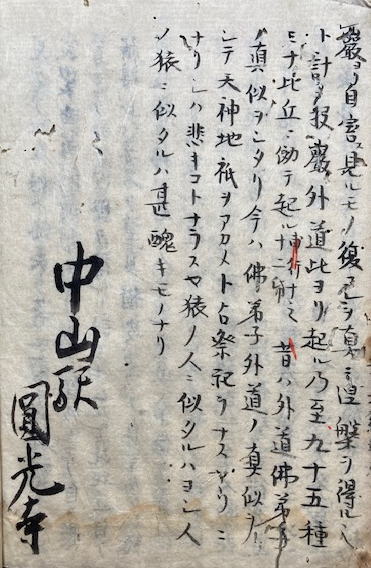 巖ヨリ自言見ルモノ復タ真ニ涅槃ヲ得ルト
ト計ヲ投巖外道此ヨリ起ル乃至九十五種
ミナ比丘ニ効テ起ル 昔ハ外道佛弟子
ノ真似ヲシタリ今ハ佛弟子外道ノ真似ヲ
シテ天神地祇ヲアカメト占祭祀ヲナスヿヲ
ナリハ悲キコトナラスヤ猿ノ人ニ似タルハヨシ人
ノ猿ニ似タルハ甚醜キモノナリ
中山駅
圓光寺